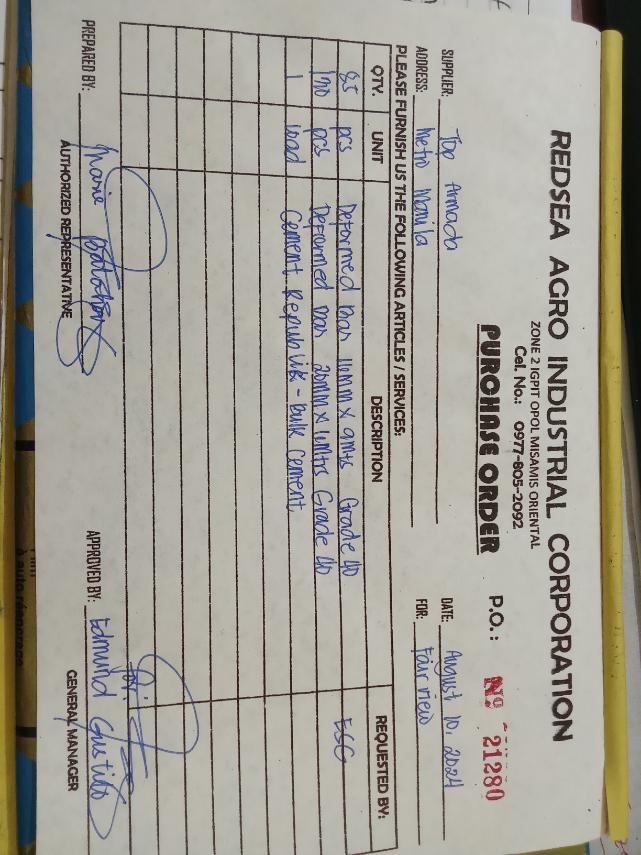 REDSEA AGRO INDUSTRIAL CORPORATION
ZONE 2 IGPIT OPOL MISAMIS ORIENTAL
Cel. No.: 0977-805-2092
PURCHASE ORDER
P.O.: Nº 21280
SUPPLIER: Top Armada DATE: August 10, 2024
ADDRESS: Metro Manila FOR: Fairview
PLEASE FURNISH US THE FOLLOWING ARTICLES / SERVICES:
QTY. UNIT DESCRIPTION REQUESTED BY:
85 pcs Deformed bar 16mm x 9mts Grade 40 ESG
pcs Deformed bar 20mm x Grade 40
1 load Cement, Republik - bulk cement,
PREPARED BY: Marie APPROVED BY: for: Edmund Gustilo
AUTHORIZED REPRESENTATIVE GENERAL MANAGER